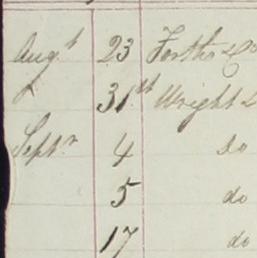 Augt 23 Forths & Co
31st Wright &
Septr 4 do
5 do
17 do